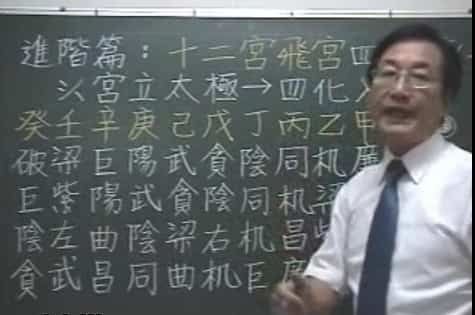 進階篇：十二宮飛宮四
以宮立太極→四化
癸壬辛庚己戊丁丙乙甲
破梁巨陽武貪陰同机廉
巨紫陽武貪陰同机梁
陰左曲陰梁右机昌紫
貪武昌同曲机巨廉